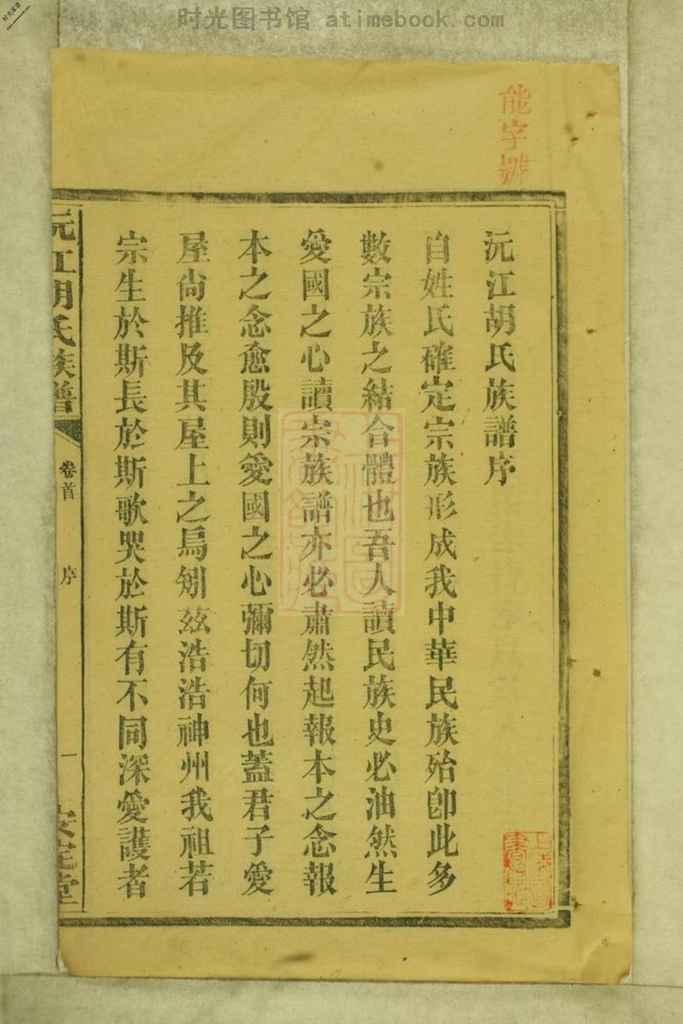 时光图书馆 atimebook.com
能字號
沅江胡氏族譜序
自姓氏確定宗族形成我中華民族殆卽此多
數宗族之結合體也吾人讀民族史必油然生
愛國之心讀宗族譜亦必肅然起報本之念報
本之念愈殷則愛國之心彌切何也蓋君子愛
屋尙推及其屋上之烏矧茲浩浩神州我祖若
宗生於斯長於斯歌哭於斯有不同深愛護者
沅江胡氏族譜
卷首
序
一
安定堂